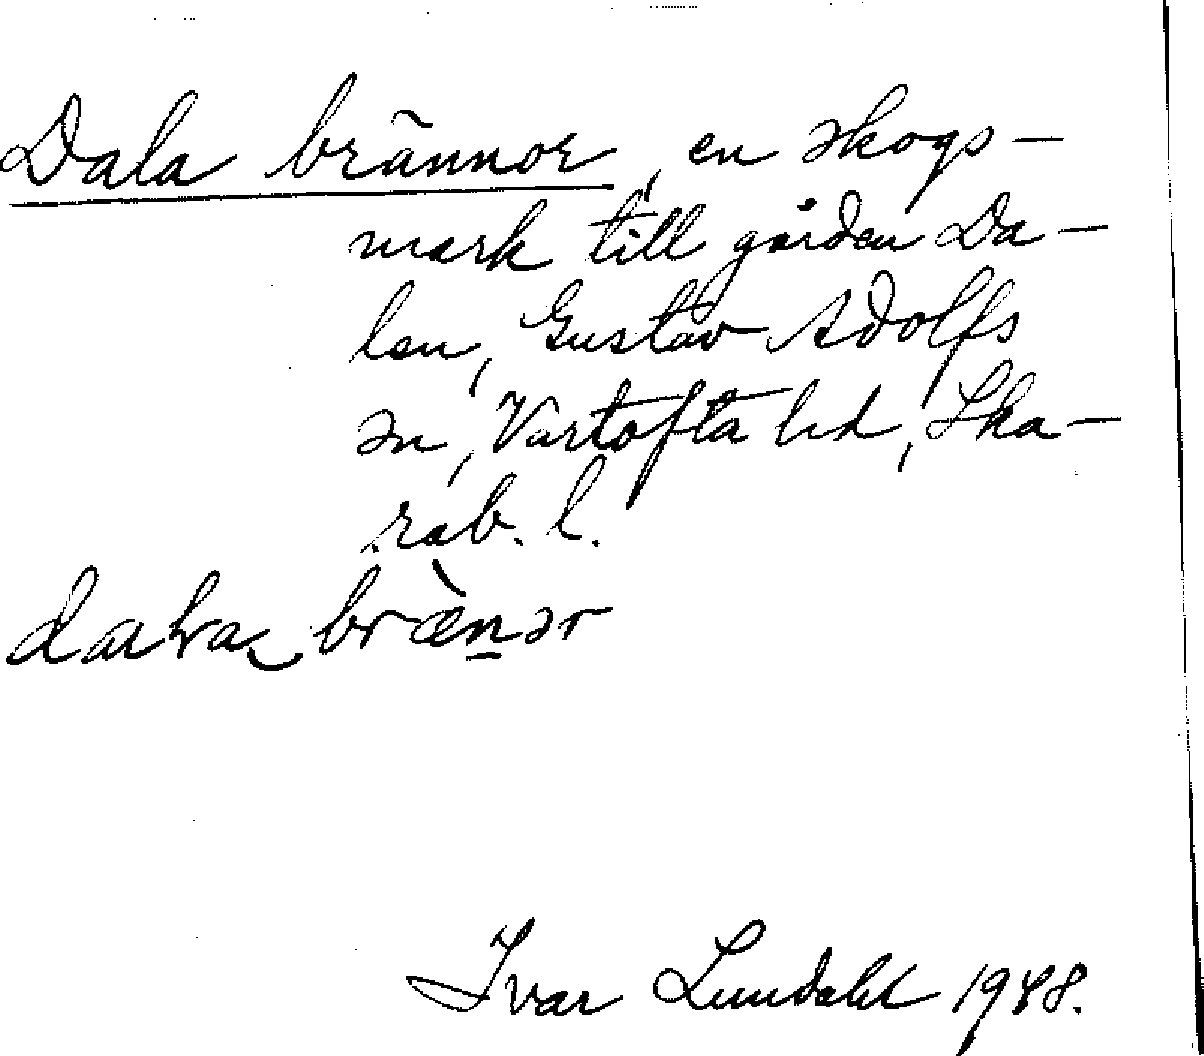 Dala brännor, en skogs-
mark till gården Da-
len, Gustav Adolfs
sn, Vartofta hd, Ska-
rab. l.
brænər
Ivar Lundahl 1948.